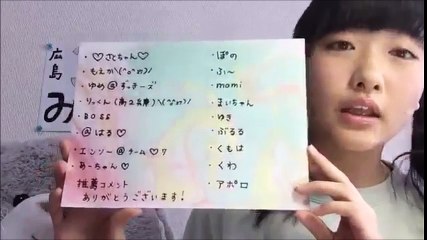 広島
み
・♡さとちゃん♡
・もえか\(^o^)/
・ゆめ@ずっきーズ
・りっくん(高2兵庫)
・BOSS
・@はる♡
・エンソー@チーム♡7
・あーちゃん♡
推薦コメント
ありがとうございます!
・ぽの
・ふ〜
・mami
・まいちゃん
・ゆき
・ぶるる
・くもは
・くわ
・アポロ